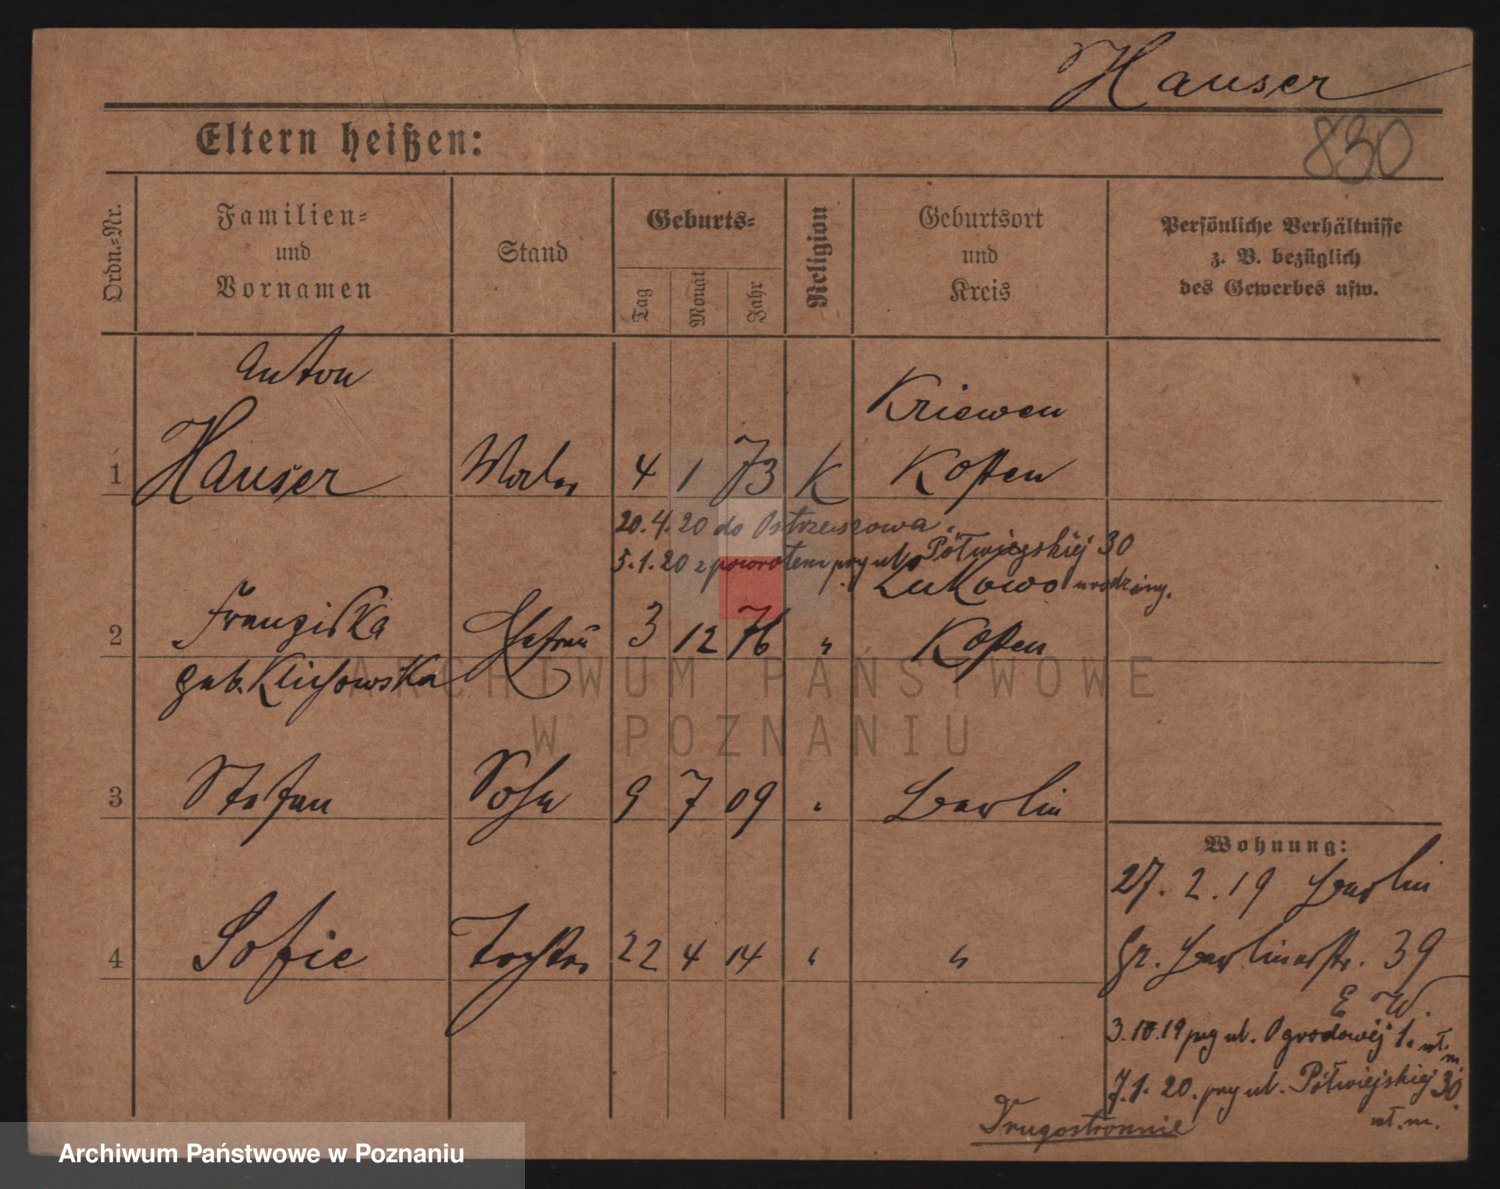 Hauser
830
Eltern heißen:
Ordn.-Nr.
Familien-
und
Vornamen
Stand
Geburts-
Tag
Monat
Jahr
Religion
Geburtsort
und
Kreis
Persönliche Verhältnisse
z. B. bezüglich
des Gewerbes usw.
Anton
Kriewen
1 Hauser Maler 4 1 73 K Kosten
20.4.20 do Ostrzeszowa
5.1.20 z powrotem przy ul. Półwiejskiej 30
Lukowo urodziny.
2 Franziska Ehefrau 3 12 76 " Kosten
geb. Klichowska
3 Stefan Sohn 9 7 09 " Berlin
Wohnung:
27. 2. 19 Berlin
4 Sofie Tochter 22 4 14 " "
Gr. Berlinerstr. 39
E. W.
3.10.19 przy ul. Ogrodowej 1. wł. m
7.1. 20. przy ul. Półwiejskiej 30
wł. m.
Drugostronnie
ARCHIWUM PAŃSTWOWE
W POZNANIU
Archiwum Państwowe w Poznaniu